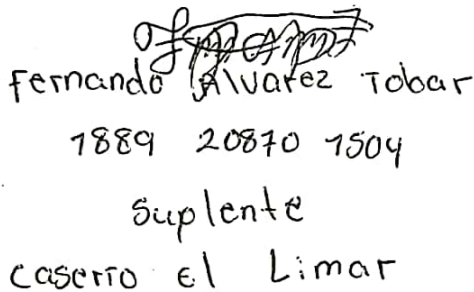 Fernando Alvarez Tobar
1889 20870 1504
Suplente
Caserío El Limar